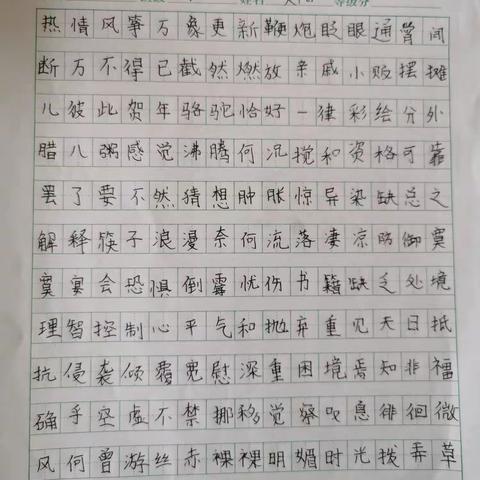 热情风筝万象更新鞭炮眨眼通宵间
断万不得已截然燃放亲戚小贩摆摊
儿彼此贺年骆驼恰好一律彩绘分外
腊八粥感觉沸腾何况搅和资格可靠
罢了要不然猜想肿胀惊异染缺总之
解释筷子浪漫奈何流落凄凉防御寞
寞宴会恐惧倒霉忧伤书籍缺乏处境
理智控制心平气和抛弃重见天日抵
抗侵袭倾覆宽慰深重困境焉知非福
确乎空虚不禁挪移觉察叹息徘徊微
风何曾游丝赤裸裸明媚时光拨弄草